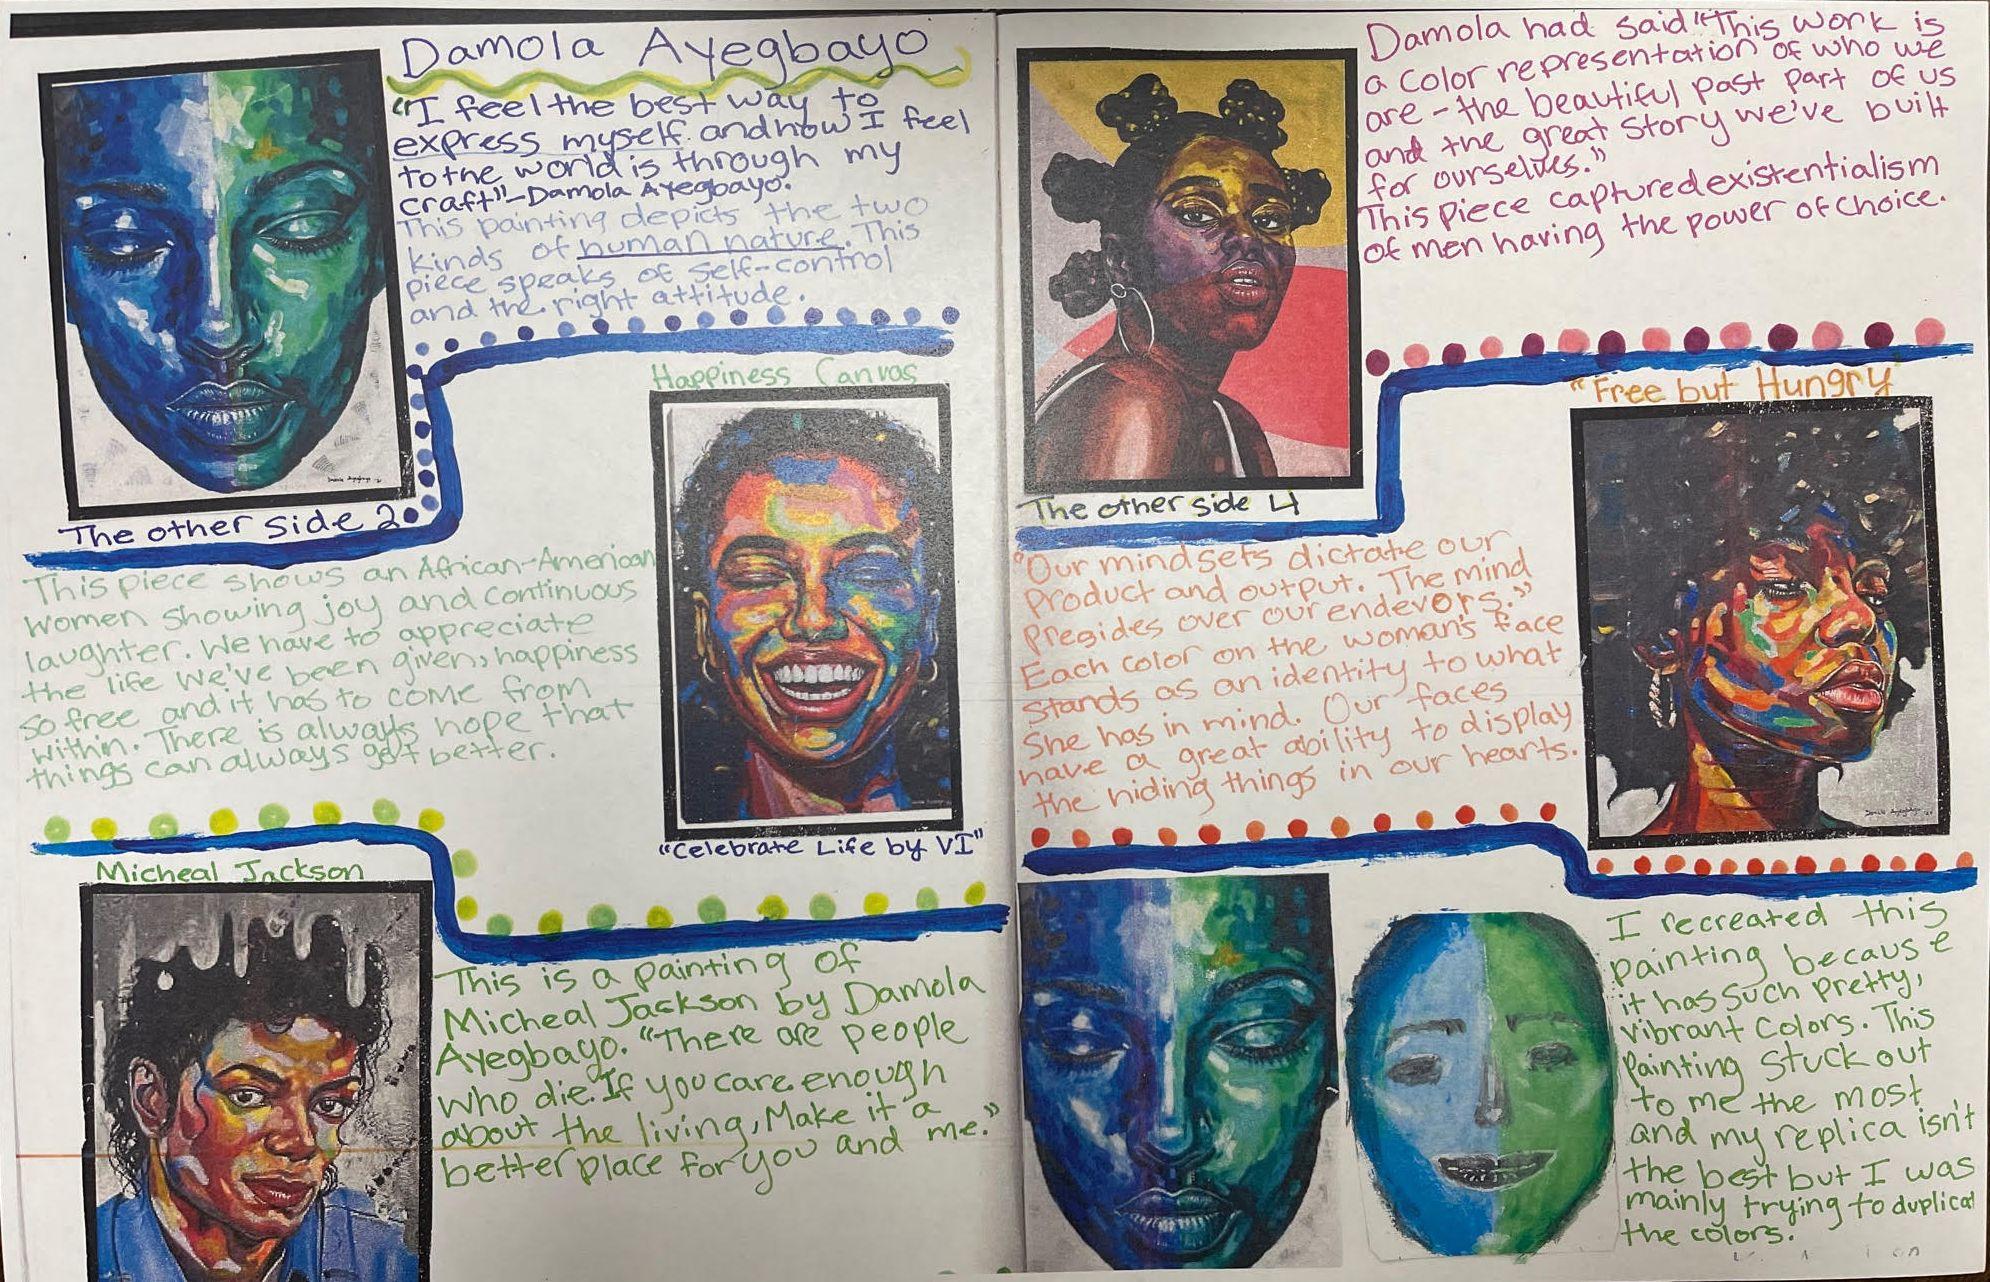 Damola Ayegbayo
"I feel the best way to
express myself. and how I feel
to the world is through my
craft"-Damola Ayegbayo.
This painting depicts the two
kinds of human nature. This
piece speaks of self-control
and the right attitude.
The other side 2
Happiness Canvas
This piece shows an African-American
women showing joy and continuous
laughter. We have to appreciate
the life we've been given, happiness
so free and it has to come from
within. There is always hope that
things can always get better.
"Celebrate Life by VI"
Micheal Jackson
This is a painting of
Micheal Jackson by Damola
Ayegbayo. "There are people
who die. If you care enough
about the living, Make it a
better place for you and me."
Damola had said "This work is
a color representation of who we
are - the beautiful past part of us
and the great story we've built
for ourselves."
This piece captured existentialism
of men having the power of choice.
The other side 4
"Free but Hungry
"Our mindsets dictate our
product and output. The mind
presides over our endevors."
Each color on the woman's face
stands as an identity to what
She has in mind. Our faces
have a great ability to display
the hiding things in our hearts.
I recreated this
painting because
it has such pretty,
vibrant colors. This
painting stuck out
to me the most
and my replica isn't
the best but I was
mainly trying to duplicat
the colors.